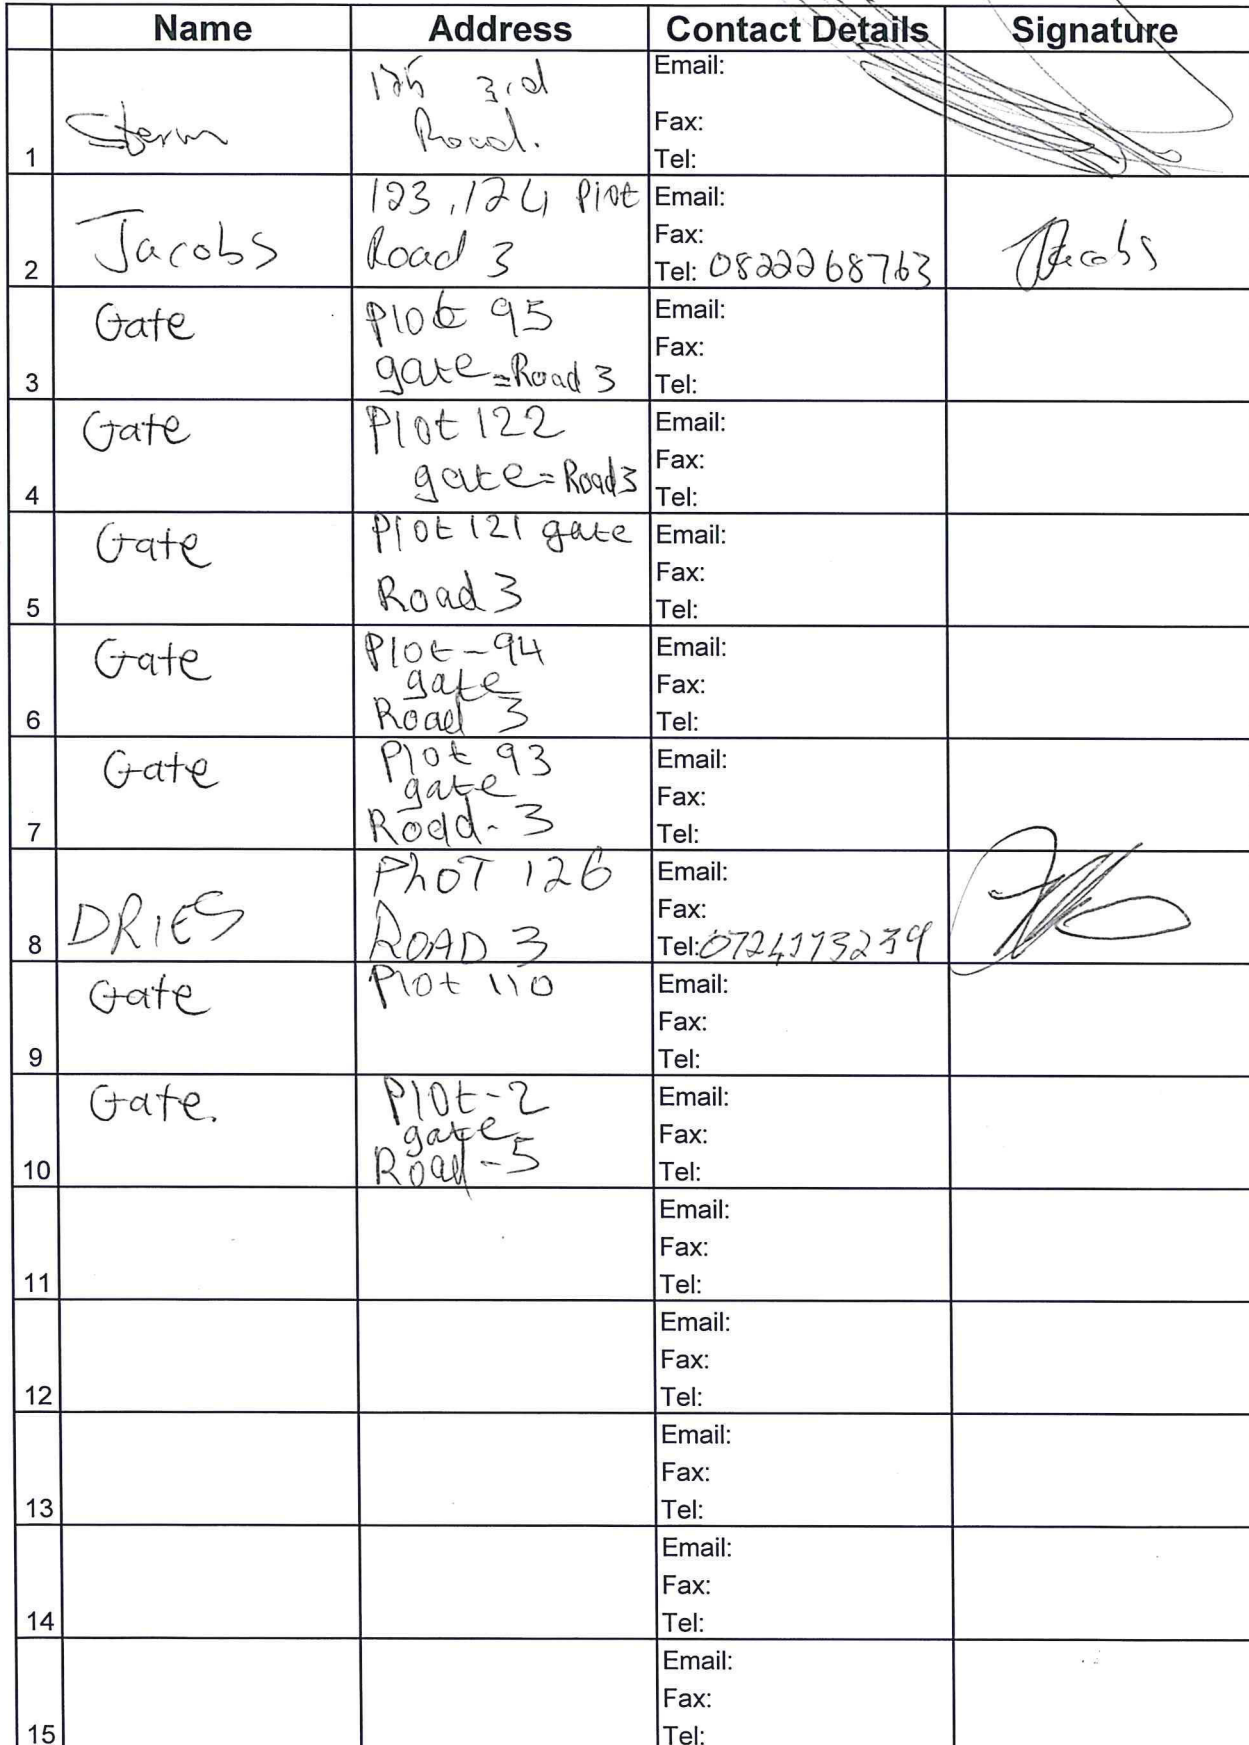 Name Address Contact Details Signature
125 3rd
Road.
Email:
Fax:
1 Tel:
123,124 Plot
Road 3
Email:
Fax:
2 Jacobs Tel: 0822268763 Jacobs
Gate Plot 95
gate=Road 3
Email:
Fax:
3 Tel:
Gate Plot 122
gate=Road3
Email:
Fax:
4 Tel:
Gate Plot 121 gate
Road 3
Email:
Fax:
5 Tel:
Gate Plot-94
gate
Road 3
Email:
Fax:
6 Tel:
Gate Plot 93
gate
Road-3
Email:
Fax:
7 Tel:
PhoT 126
ROAD 3
Email:
Fax:
8 DRIES Tel:
Gate Plot 110
Email:
Fax:
9 Tel:
Gate. Plot-2
gate
Road-5
Email:
Fax:
10 Tel:
Email:
Fax:
11 Tel:
Email:
Fax:
12 Tel:
Email:
Fax:
13 Tel:
Email:
Fax:
14 Tel:
Email:
Fax:
15 Tel: